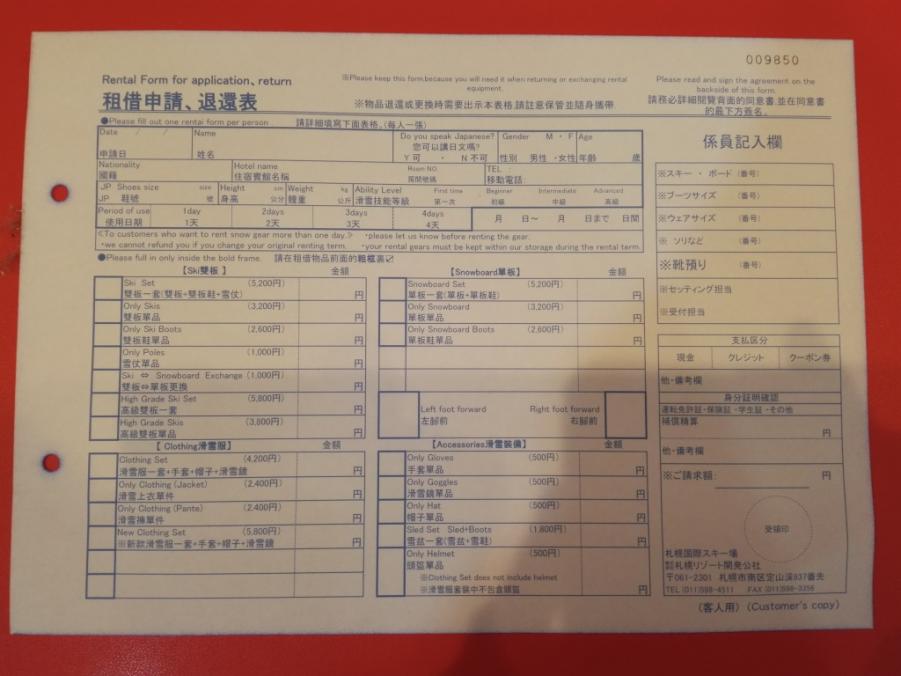 009850
Rental Form for application、return
租借申請、退還表
※Please keep this form,because you will need it when returning or exchanging rental equipment.
※物品退還或更換時需要出示本表格,請註意保管並隨身攜帶.
Please read and sign the agreement on the
backside of this form.
請務必詳細閱覽背面的同意書,並在同意書
的最下方簽名。
●Please fill out one rental form per person
請詳細填寫下面表格。(每人一張)
Date / /
申請日
Name
姓名
Do you speak Japanese?
您可以講日文嗎?
Y 可 ・ N 不可
Gender M ・ F
性別 男性 ・女性
Age
年齡 歳
Nationality
國籍
Hotel name
住宿賓館名稱
Room NO.
房間號碼
TEL
移動電話:
JP Shoes size size
JP 鞋號 號
Height cm
身高 公分
Weight kg
體重 公斤
Ability Level First time Beginner Intermediate Advanced
滑雪技能等級 第一次 初級 中級 高級
Period of use 1day 2days 3days 4days
使用日期 1天 2天 3天 4天
月 日~ 月 日まで 日間
<To customers who want to rent snow gear more than one day.> ・please let us know before renting the gear.
・we cannot refund you if you change your original renting term. ・your rental gears must be kept within our storage during the rental term.
●Please full in only inside the bold frame. 請在租借物品前面的粗框裏☑
【Ski雙板 】 金額
Ski Set (5,200円)
雙板一套(雙板+雙板鞋+雪仗) 円
Only Skis (3,200円)
雙板單品 円
Only Ski Boots (2,600円)
雙板鞋單品 円
Only Poles (1,000円)
雪仗單品 円
Ski ⇔ Snowboard Exchange (1,000円)
雙板⇔單板更換 円
High Grade Ski Set (5,800円)
高級雙板一套 円
High Grade Skis (3,800円)
高級雙板單品 円
【Snowboard單板】 金額
Snowboard Set (5,200円)
單板一套(單板+單板鞋) 円
Only Snowboard (3,200円)
單板單品 円
Only Snowboard Boots (2,600円)
單板鞋單品 円
Left foot forward
左腳前
Right foot forward
右腳前
【 Clothing滑雪服】 金額
Clothing Set (4,200円)
滑雪服一套+手套+帽子+滑雪鏡 円
Only Clothing (Jacket) (2,400円)
滑雪上衣單件 円
Only Clothing (Pante) (2,400円)
滑雪褲單件 円
New Clothing Set (5,800円)
※新款滑雪服一套+手套+帽子+滑雪鏡 円
【Accessories滑雪裝備】 金額
Only Gloves (500円)
手套單品 円
Only Goggles (500円)
滑雪鏡單品 円
Only Hat (500円)
帽子單品 円
Sled Set Sled+Boots (1,800円)
雪盆一套(雪盆+雪鞋) 円
Only Helmet (500円)
頭盔單品
※Clothing Set does not include helmet
※滑雪服套裝中不包含頭盔 円
係員記入欄
※スキー ・ ボード (番号)
※ブーツサイズ (番号)
※ウェアサイズ (番号)
※ ソリなど (番号)
※靴預り (番号)
※セッティング担当
※受付担当
支払区分
現金 クレジット クーポン券
他・備考欄
身分証明確認
運転免許証・保険証・学生証・その他
補償精算 円
他・備考欄
※ご請求額: 円
受領印
札幌国際スキー場
株式会社札幌リゾート開発公社
〒061-2301 札幌市南区定山渓937番先
TEL (011)598-4511 FAX (011)598-3256
(客人用) (Customer's copy)